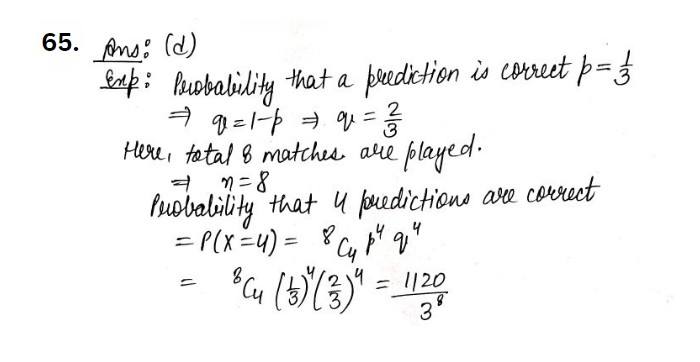 65. Ans: (d)
Exp: Probability that a prediction is correct p = 1/3
⇒ q = 1-p ⇒ q = 2/3
Here, total 8 matches are played.
⇒ n = 8
Probability that 4 predictions are correct
= P(X=4) = ⁸C₄ p⁴ q⁴
= ⁸C₄ (1/3)⁴ (2/3)⁴ = 1120/3⁸